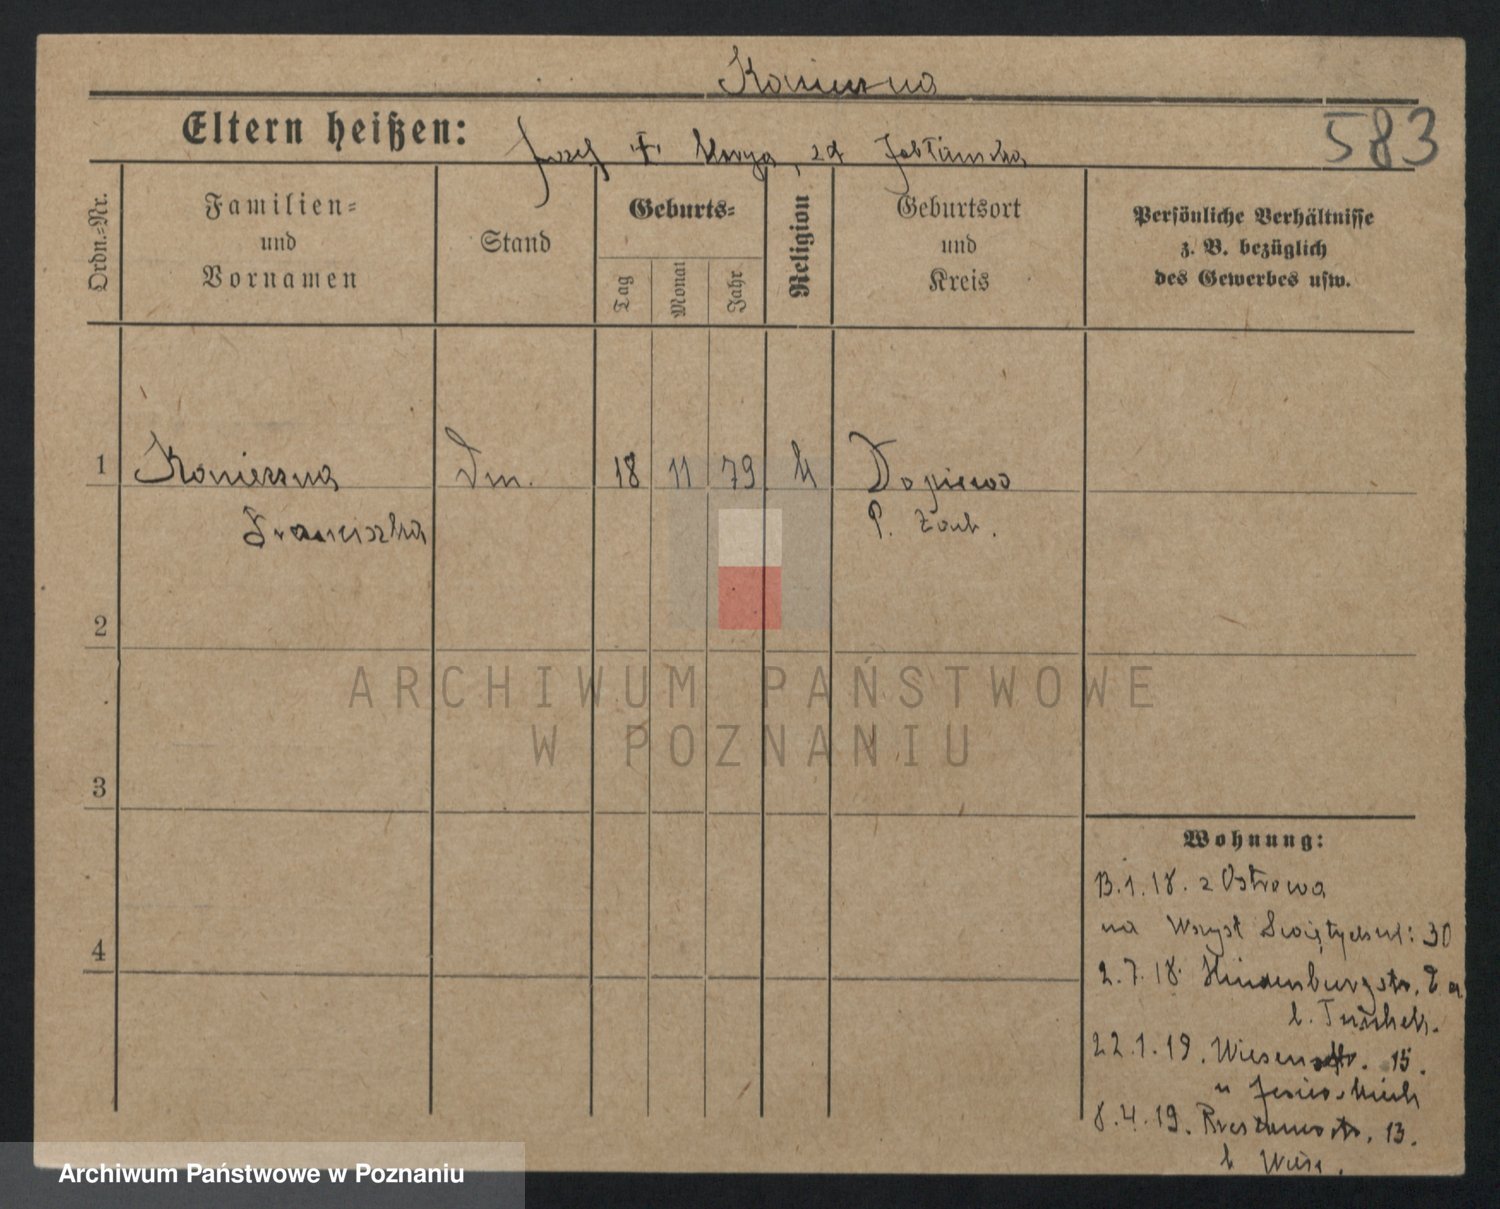 Konieczna
Eltern heißen: Jozef + Marya, zd Jabłońska
583
Ordn.-Nr.
Familien-
und
Vornamen
Stand
Geburts-
Tag
Monat
Jahr
Religion
Geburtsort
und
Kreis
Persönliche Verhältnisse
z. B. bezüglich
des Gewerbes usw.
1 Konieczna 18 11 79 k Dopiewo
Franciszka P. Zach.
2
3
4
Wohnung:
13.1.18. z Ostrowa
na Wszyst Swiętych: 30
2.7.18. Hindenburgstr.
22.1.19. Wiesenstr. 15.
8.4.19. 13.
b Wiese.
ARCHIWUM PAŃSTWOWE
W POZNANIU
Archiwum Państwowe w Poznaniu